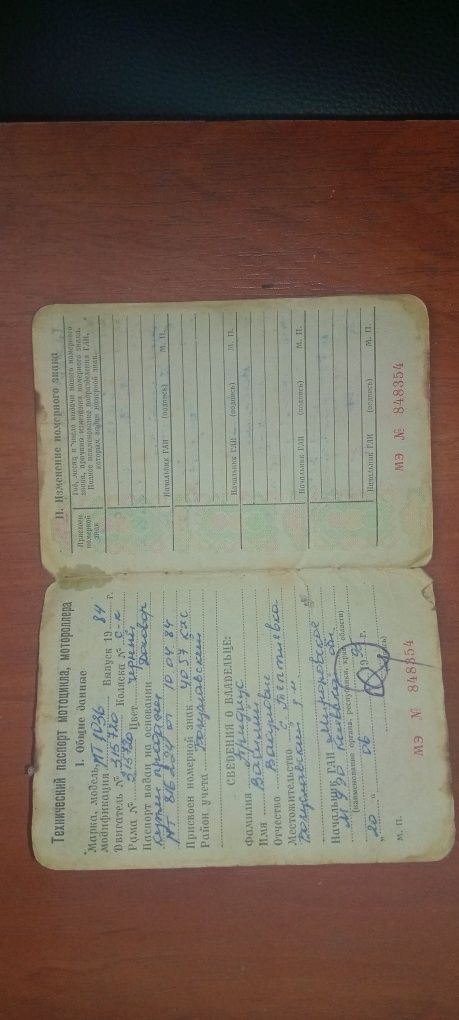 Технический паспорт мотоцикла, мотороллера
I. Общие данные
Марка, модель, МТ 1036
модификация Выпуск 19 84 г.
Двигатель № 315720 Коляска № с-к
Рама № 315720 Цвет черный
Паспорт выдан на основании Договор
купли продажи
МТ от 10 04 84
Присвоен номерной знак 4057 КИС
Район учета Богуславский
СВЕДЕНИЯ О ВЛАДЕЛЬЦЕ:
Фамилия
Имя Василий
Отчество
Местожительство с.
Богуславский р-н
Начальник ГАИ Мироновское
(наименование органа, республики, края, области)
"20" 06 19 г.
(подпись)
М. П.
МЭ № 848354
II. Изменение номерного знака
Присвоен номерной знак
Год, месяц и число выдачи нового номерного
знака, причина изменения номерного знака.
Полное наименование подразделения ГАИ,
которым выдан номерной знак.
Начальник ГАИ (подпись) М. П.
Начальник ГАИ (подпись) М. П.
Начальник ГАИ (подпись) М. П.
Начальник ГАИ (подпись) М. П.
МЭ № 848354